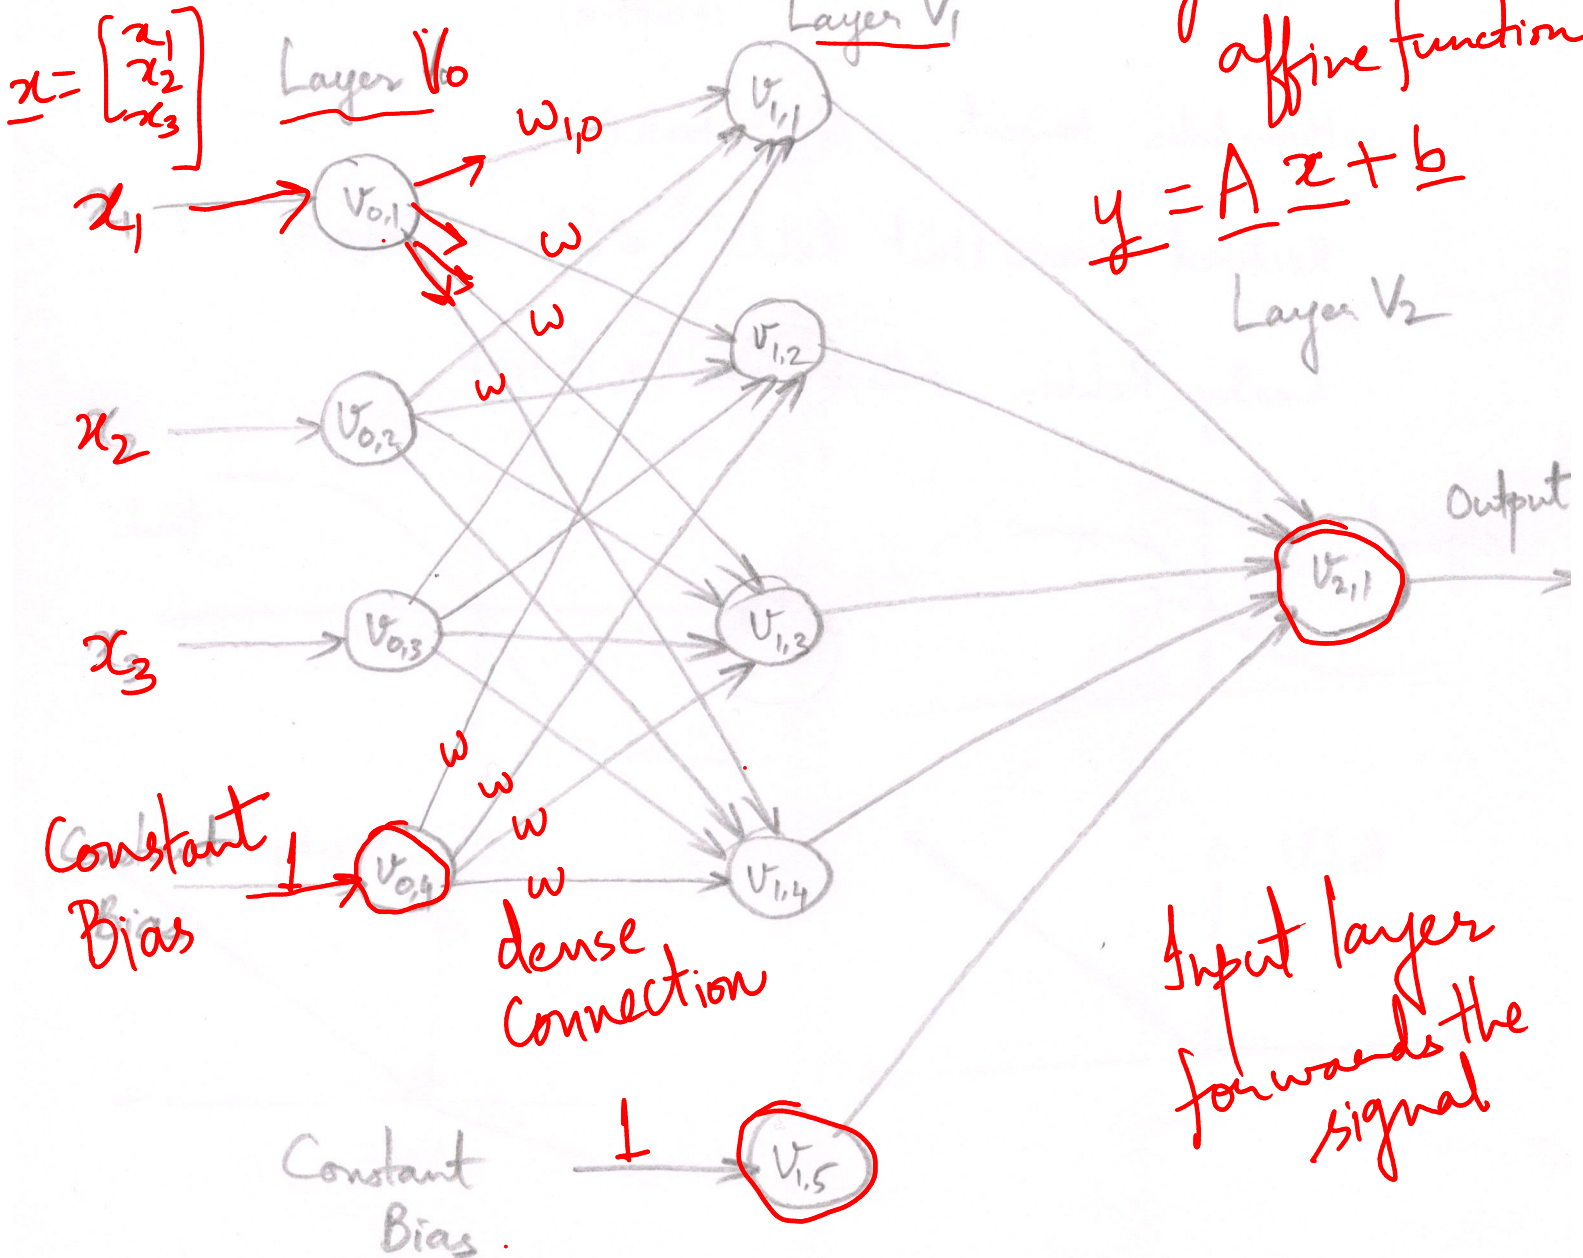 x = [x1
x2
x3]
Layer V0
Layer V1
affine function
y = A x + b
x1
v0,1
w1,0
v1,1
w
w
w
Layer V2
x2
v0,2
v1,2
Output
x3
v0,3
v1,3
v2,1
w
w
w
w
Constant
Bias
1
v0,4
v1,4
dense
connection
Input layer
forwards the
signal
Constant
Bias
1
v1,5